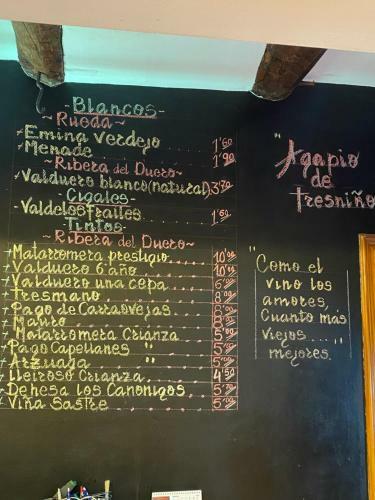 -Blancos-
~Rueda~
-Emina verdejo 1'60
-Menade 1'90
~Ribera del Duero~
-Valduero blanco(natural) 3'70
Cigales-
-Valdelosfrailes 1'60
Tintos-
~Ribera del Duero~
-Matarromera prestigio 10'00
-Valduero 6 año 10'00
-Valduero una cepa 6'00
-Tresmano 8'00
-Pago de Carraovejas
-Mauro
-Matarromera Crianza 5'00
-Pago Capellanes "
-Arzuaga " 5'00
-Lleiroso Crianza 4'50
-Dehesa los Canonigos
-Viña Sastre 5'00
"Agapio
de
Tresniño
"Como el
vino los
amores,
Cuanto más
viejos....
mejores. "